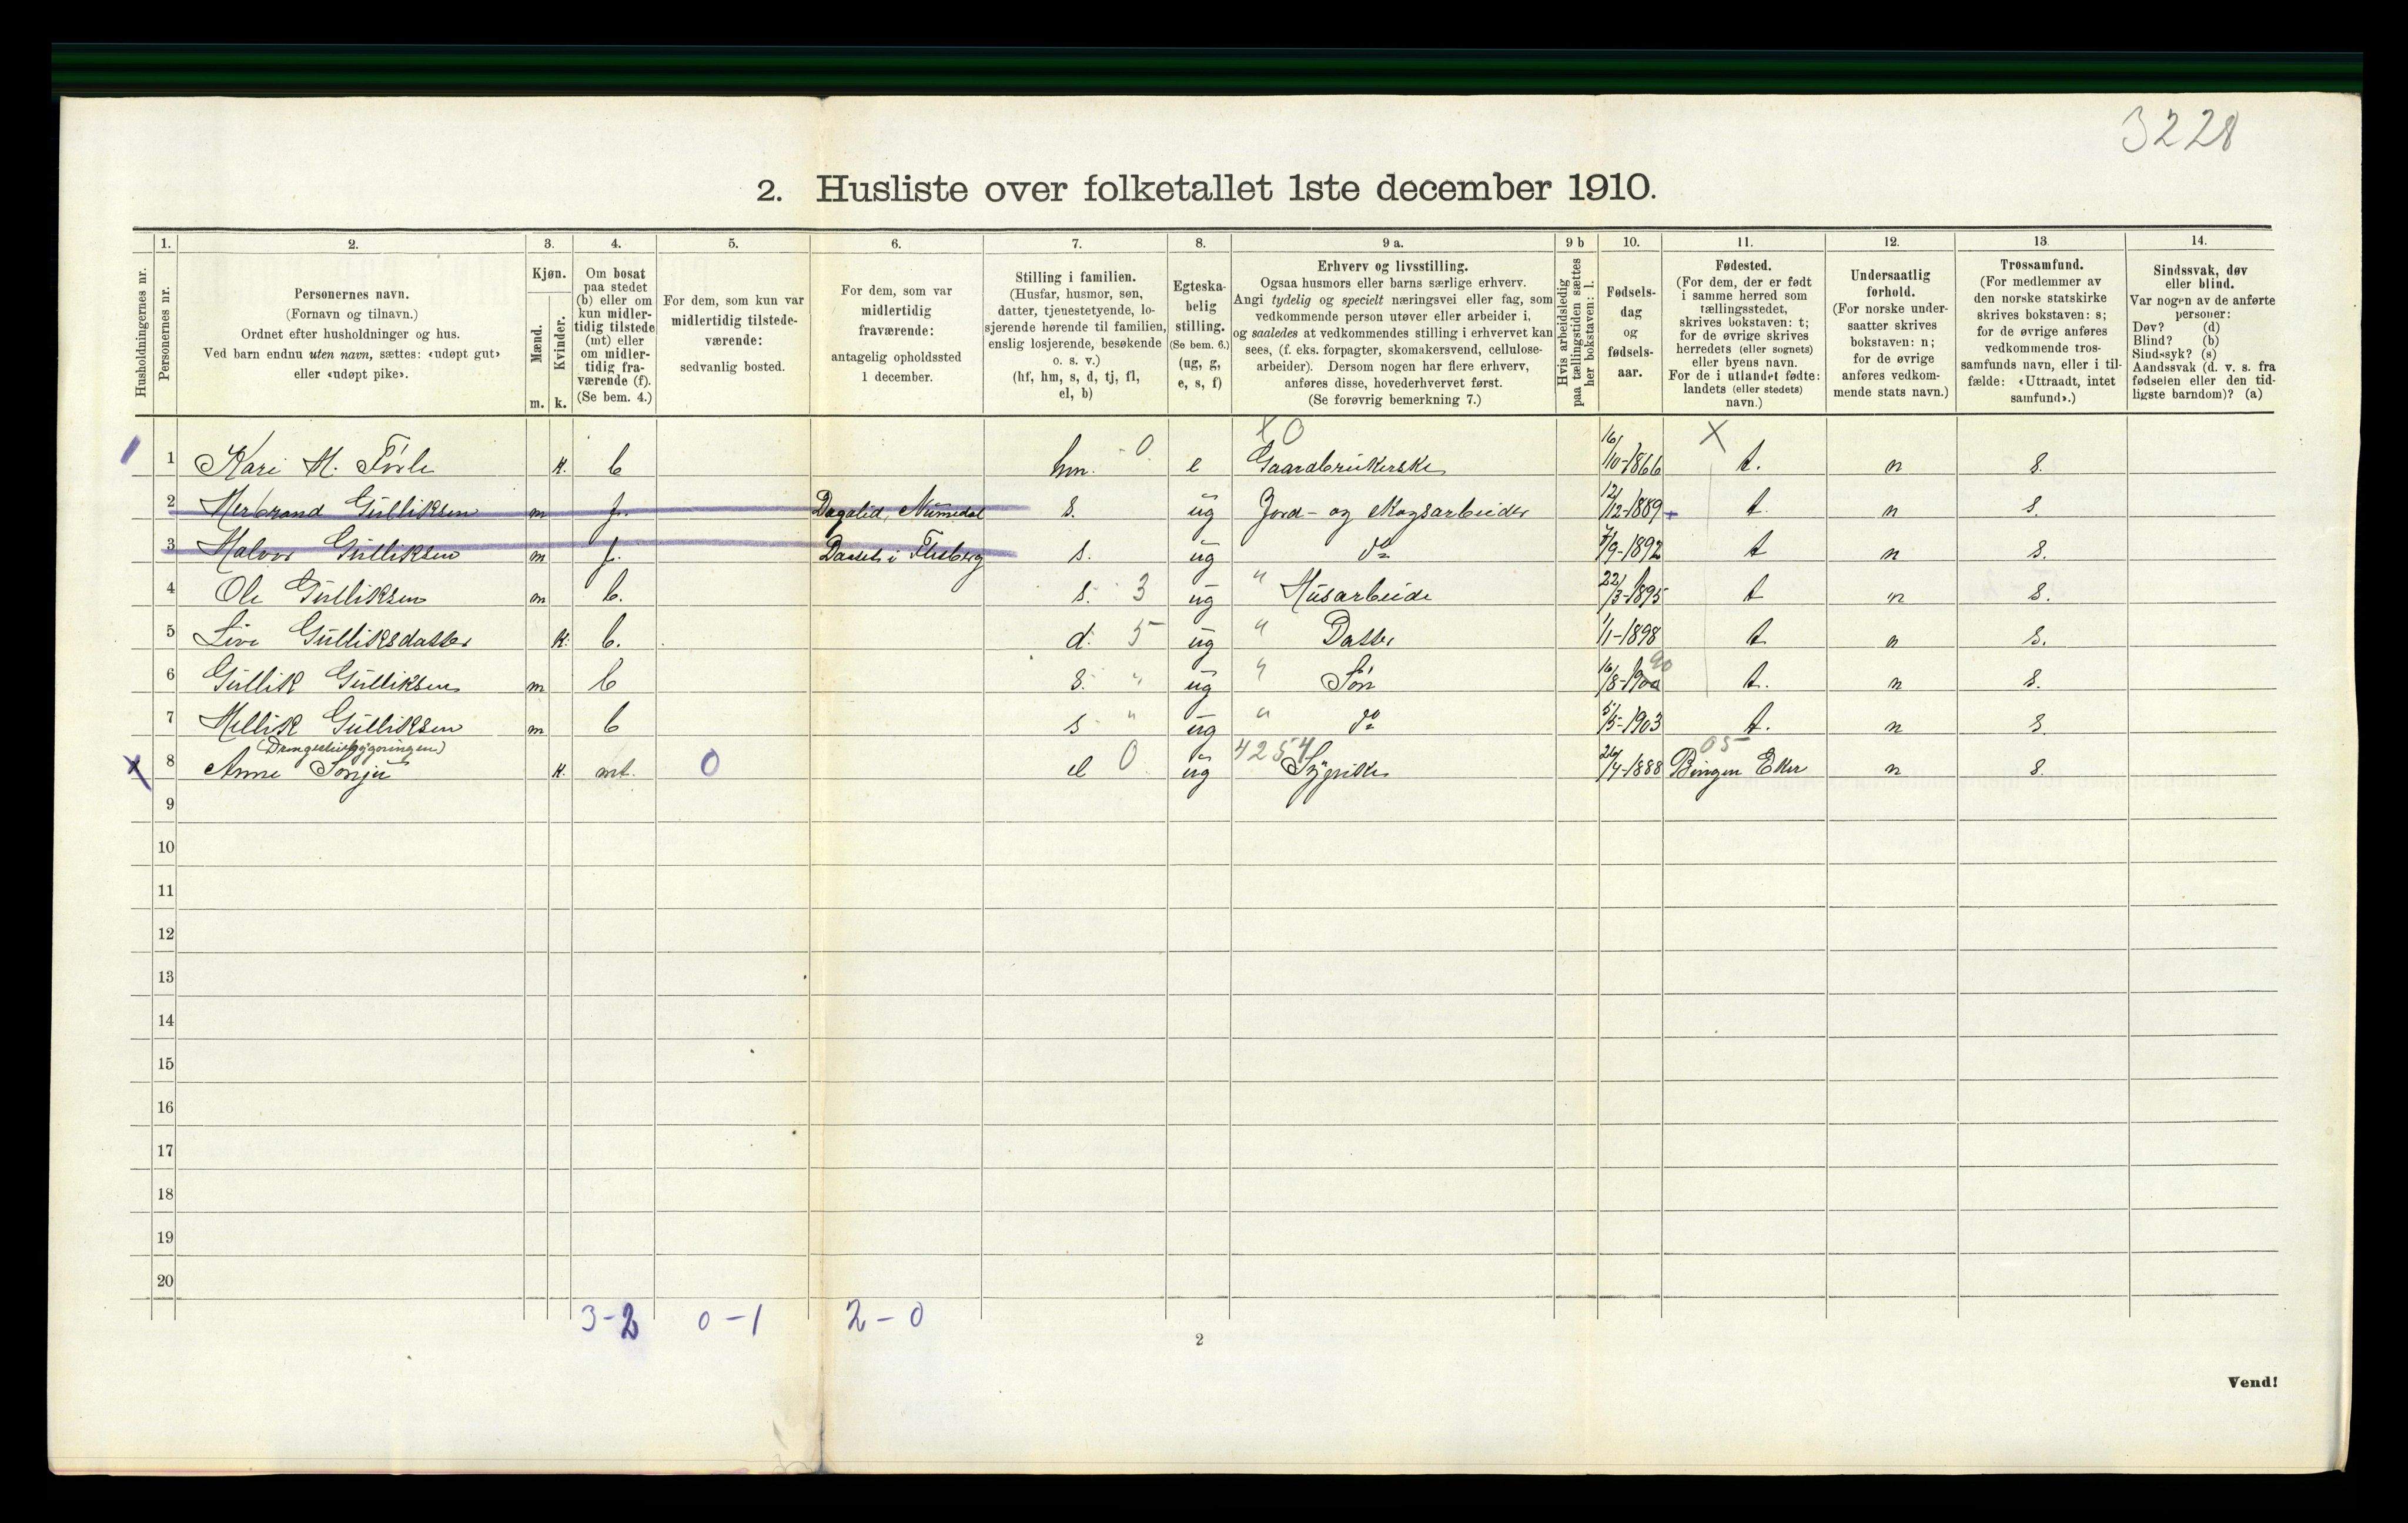 3228
2. Husliste over folketallet 1ste december 1910.
1. 2. 3. 4. 5. 6. 7. 8. 9 a. 9 b 10. 11. 12. 13. 14.
Husholdningernes nr.
Personernes nr.
Personernes navn.
(Fornavn og tilnavn.)
Ordnet efter husholdninger og hus.
Ved barn endnu uten navn, sættes: «udøpt gut»
eller «udøpt pike».
Kjøn.
Mænd.
Kvinder.
m. k.
Om bosat
paa stedet
(b) eller om
kun midler-
tidig tilstede
(mt) eller
om midler-
tidig fra-
værende (f).
(Se bem. 4.)
For dem, som kun var
midlertidig tilstede-
værende:
sedvanlig bosted.
For dem, som var
midlertidig
fraværende:
antagelig opholdssted
1 december.
Stilling i familien.
(Husfar, husmor, søn,
datter, tjenestetyende, lo-
sjerende hørende til familien,
enslig losjerende, besøkende
o. s. v.)
(hf, hm, s, d, tj, fl,
el, b)
Egteska-
belig
stilling.
(Se bem. 6.)
(ug, g,
e, s, f)
Erhverv og livsstilling.
Ogsaa husmors eller barns særlige erhverv.
Angi tydelig og specielt næringsvei eller fag, som
vedkommende person utøver eller arbeider i,
og saaledes at vedkommendes stilling i erhvervet kan
sees, (f. eks. forpagter, skomakersvend, cellulose-
arbeider). Dersom nogen har flere erhverv,
anføres disse, hovederhvervet først.
(Se forøvrig bemerkning 7.)
Hvis arbeidsledig
paa tællingstiden sættes
her bokstaven: l.
Fødsels-
dag
og
fødsels-
aar.
Fødested.
(For dem, der er født
i samme herred som
tællingsstedet,
skrives bokstaven: t;
for de øvrige skrives
herredets (eller sognets)
eller byens navn.
For de i utlandet fødte:
landets (eller stedets)
navn.)
Undersaatlig
forhold.
(For norske under-
saatter skrives
bokstaven: n;
for de øvrige
anføres vedkom-
mende stats navn.)
Trossamfund.
(For medlemmer av
den norske statskirke
skrives bokstaven: s;
for de øvrige anføres
vedkommende tros-
samfunds navn, eller i til-
fælde: «Uttraadt, intet
samfund».)
Sindssvak, døv
eller blind.
Var nogen av de anførte
personer:
Døv? (d)
Blind? (b)
Sindssyk? (s)
Aandssvak (d. v. s. fra
fødselen eller den tid-
ligste barndom)? (a)
X 0 X
1 1 Kari H. k. b hm. 0 e Gaardbrukerske 16/10-1866 t. n s.
2 Herbrand Gulliksen m f. Dagalid, Numedal s. ug Jord- og skogsarbeider 12/12-1889 t. n s.
3 Halvor Gulliksen m f. i Flesberg s. ug do 7/9-1892 t n s.
4 Ole Gulliksen m b. s. 3 ug " Husarbeide 22/3-1895 t n s.
5 Live Gulliksdatter k. b. d. 5 ug " Datter 1/1-1898 t n s.
90
6 Gullik Gulliksen m b s. " ug " Søn 16/8-1900 t. n s.
7 Hellik Gulliksen m b s " ug " do 5/5-1903 t. n s.
(Drengestubygningen) 4254 05
x 8 Anne k. mt. 0 el 0 ug Sypike 26/4-1888 Bingen Eker n s.
9
10
11
12
13
14
15
16
17
18
19
20
3-2 0-1 2-0
2
Vend!